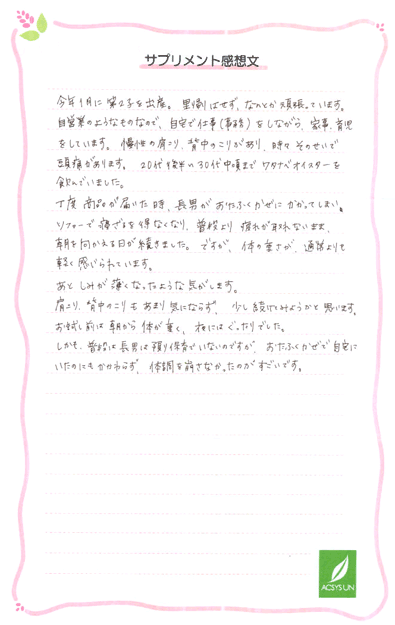 サプリメント感想文
今年1月に第2子を出産。里帰りはせず、なんとか頑張っています。
自営業のようなものなので、自宅で仕事(事務)をしながら、家事、育児
をしています。慢性の肩こり、背中のこりがあり、時々そのせいで
頭痛があります。20代後半〜30代中頃まで ワタナベオイスターを
飲んでいました。
丁度 商品が届いた時、長男がおたふくかぜにかかってしまい。
ソファーで寝ざるを得なくなり、普段より疲れが取れないまま、
朝を向かえる日が続きました。ですが、体の重さが、通常よりも
軽く感じられています。
あと しみが薄くなったような気がします。
肩こり、背中のこりもあまり気にならず、少し続けてみようかと思います。
お試し前は朝から体が重く、夜にはぐったりでした。
しかも、普段は長男は預り保育でいないのですが、おたふくかぜで自宅に
いたのにもかかわらず、体調を崩さなかったのがすごいです。
ACSYS UN